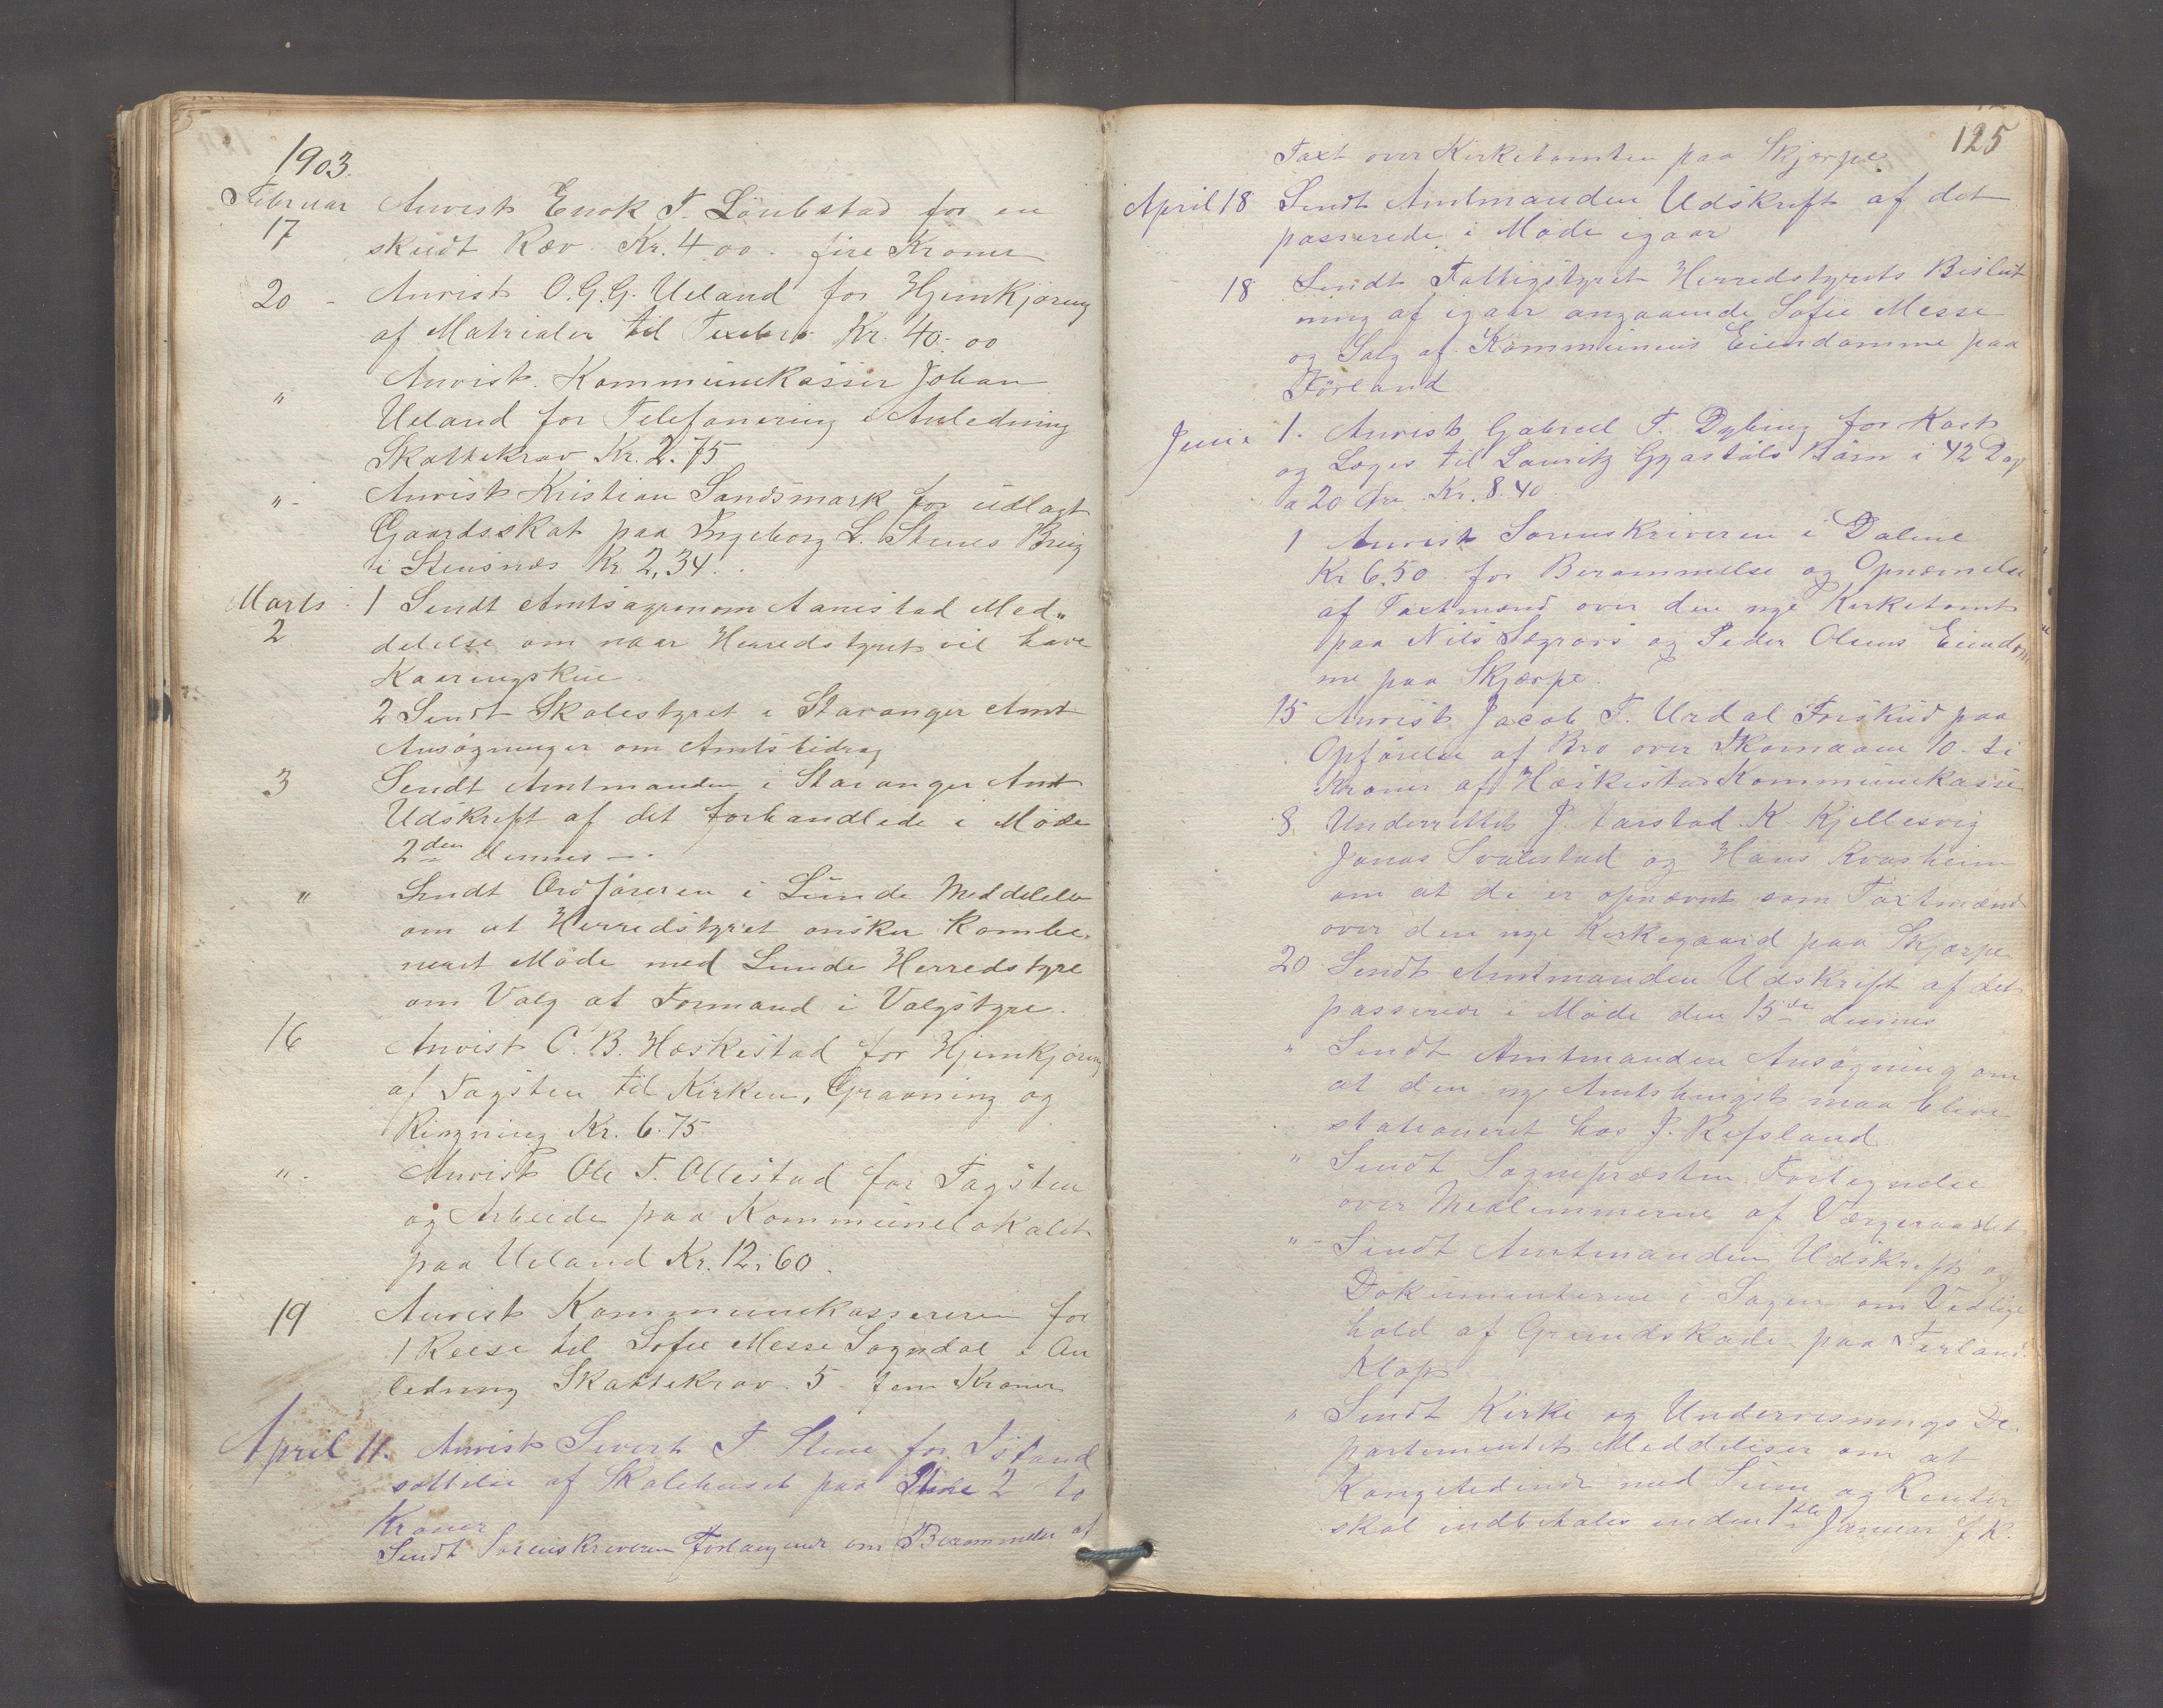 1903.
Februar Anvist Enok T. Löubstad for en
17 skudt Ræv. Kr. 4.00. fire Kroner
20 - Anvist O.G.G. Ueland for Hjemkjöring
af Matrialer til Kr. 40.00
" Anvist. Kommunekasser Johan
Ueland for Telefonering i Anledning
Skattekrav Kr. 2.75
" - Anvist Kristian Sandsmark for udlagt
Gaardsskat paa Ingeborg L. Stenes Brug
i Stensnæs Kr 2,34.
Marts 1 Sendt Amtsagronom Aanestad Med„
2 delelse om naar Herredstyret vil have
Kaaringskue.
2 Sendt Skolestyret i Stavanger Amt
Ansögninger om Amtsbidrag
3 Sendt Amtmanden i Stavanger Amt
Udskrift af det forhandlede i Möde
2den dennes -.
" Sendt Ordföreren i Lunde Meddelelse
om at Herredstyret önsker Kombi„
neret Möde med Lunde Herredstyre
om Valg at Formand i Valgstyre.
16 Anvist O. B. Hæskestad for Hjemkjöring
af Tagsten til Kirken, Gravning og
Ringning Kr. 6.75
" . Anvist Ole T. Ollestad for Tagsten
og Arbeide paa Kommunelokalet
paa Ueland Kr. 12.60.
19 Anvist Kommunekassereren for
1 Reise til Sofie Messe Sogndal i An
ledning Skattekrav. 5 fem Kroner
April 11. Anvist Sivert T. Stene for Istand
sættelse af Skolehuset paa Stene 2 to
Kroner
Sendt Sorenskriveren Forlangende om Berammelse af
125
Taxt over Kirketomten paa Skjærpe
April 18 Sendt Amtmanden Udskrift af det
passerede i Möde igaar
18 Sendt Fattigstyret Herredstyrets Beslut
ning af igaar angaaende Sofie Messe
og Salg af Kommunens Eiendomme paa
Förland
Juni 1. Anvist Gabriel T. Dybing for Kost
og Loges til Lauritz Barn i 42 Dag
a 20 Öre Kr. 8.40.
1 Anvist Sorenskriveren i Dalene
Kr 6.50 for Berammelse og Opnævnelse
af Taxtmænd over den nye Kirketomt
paa Nils Øgreids og Peder Olsens Eiendom
me paa Skjærpe.
15 Anvist Jacob T. Urdal Forskud paa
Opförelse af Bro over 10 - ti
Kroner af Hæskestad Kommunekasse
8 Underrettet J. Aarstad K. Kjellesvig
Jonas Svalestad og Hans Kvasheim
om at de er opnævnt som Taxtmænd
over den nye Kirkegaard paa Skjærpe
20 Sendt Amtmanden Udskrift af det
passerede i Möde den 15de dennes
" Sendt Amtmanden Ansögning om
at den nye Amtshingst maa blive
stationeret hos J. Refsland
" Sendt Sognepræsten Fortegnelse
over Medlemmerne af Værgeraadet
" - Sendt Amtmanden Udskrift og
Dokumenterne i Sagen om Vedlige
hold af Grundskade paa
Klop
" Sendt Kirke og Undervisnings De„
partementet Meddelelse om at
Kongetiende med Sum og Renter
skal indbetales inden 1ste Januar f. K.